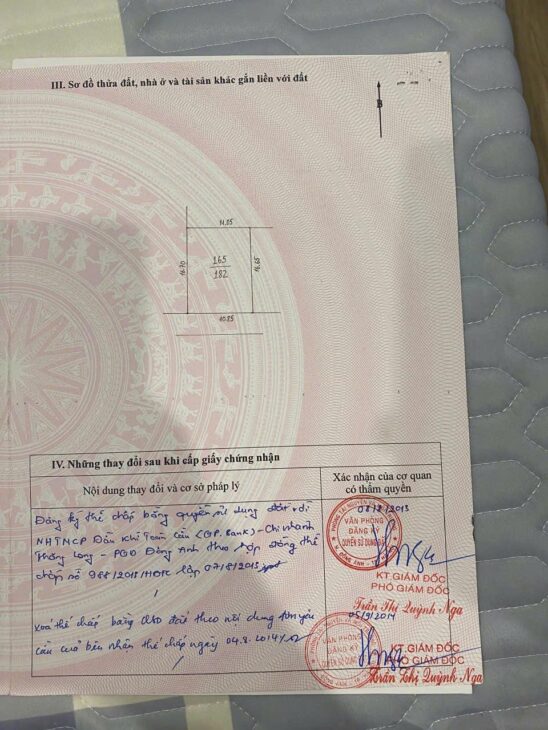 III. Sơ đồ thửa đất, nhà ở và tài sản khác gắn liền với đất
B
11.05
16.70
165
182
16.65
10.85
IV. Những thay đổi sau khi cấp giấy chứng nhận
Nội dung thay đổi và cơ sở pháp lý
Xác nhận của cơ quan
có thẩm quyền
Đăng ký thế chấp bằng quyền sử dụng đất với
NHTMCP Dầu Khí Toàn Cầu (GP. Bank) - Chi nhánh
Thăng Long - PGD Đông Anh theo hợp đồng thế
chấp số 988/2013/HĐTC lập 07/8/2013
08/8/2013
VĂN PHÒNG
ĐĂNG KÝ
QUYỀN SỬ DỤNG ĐẤT
KT GIÁM ĐỐC
PHÓ GIÁM ĐỐC
Trần Thị Quỳnh Nga
Xoá thế chấp bằng QSD đất theo nội dung đơn yêu
cầu của bên nhận thế chấp ngày 04.8.2014
05/9/2014
VĂN PHÒNG
ĐĂNG KÝ
QUYỀN SỬ DỤNG
KT GIÁM ĐỐC
PHÓ GIÁM ĐỐC
Trần Thị Quỳnh Nga